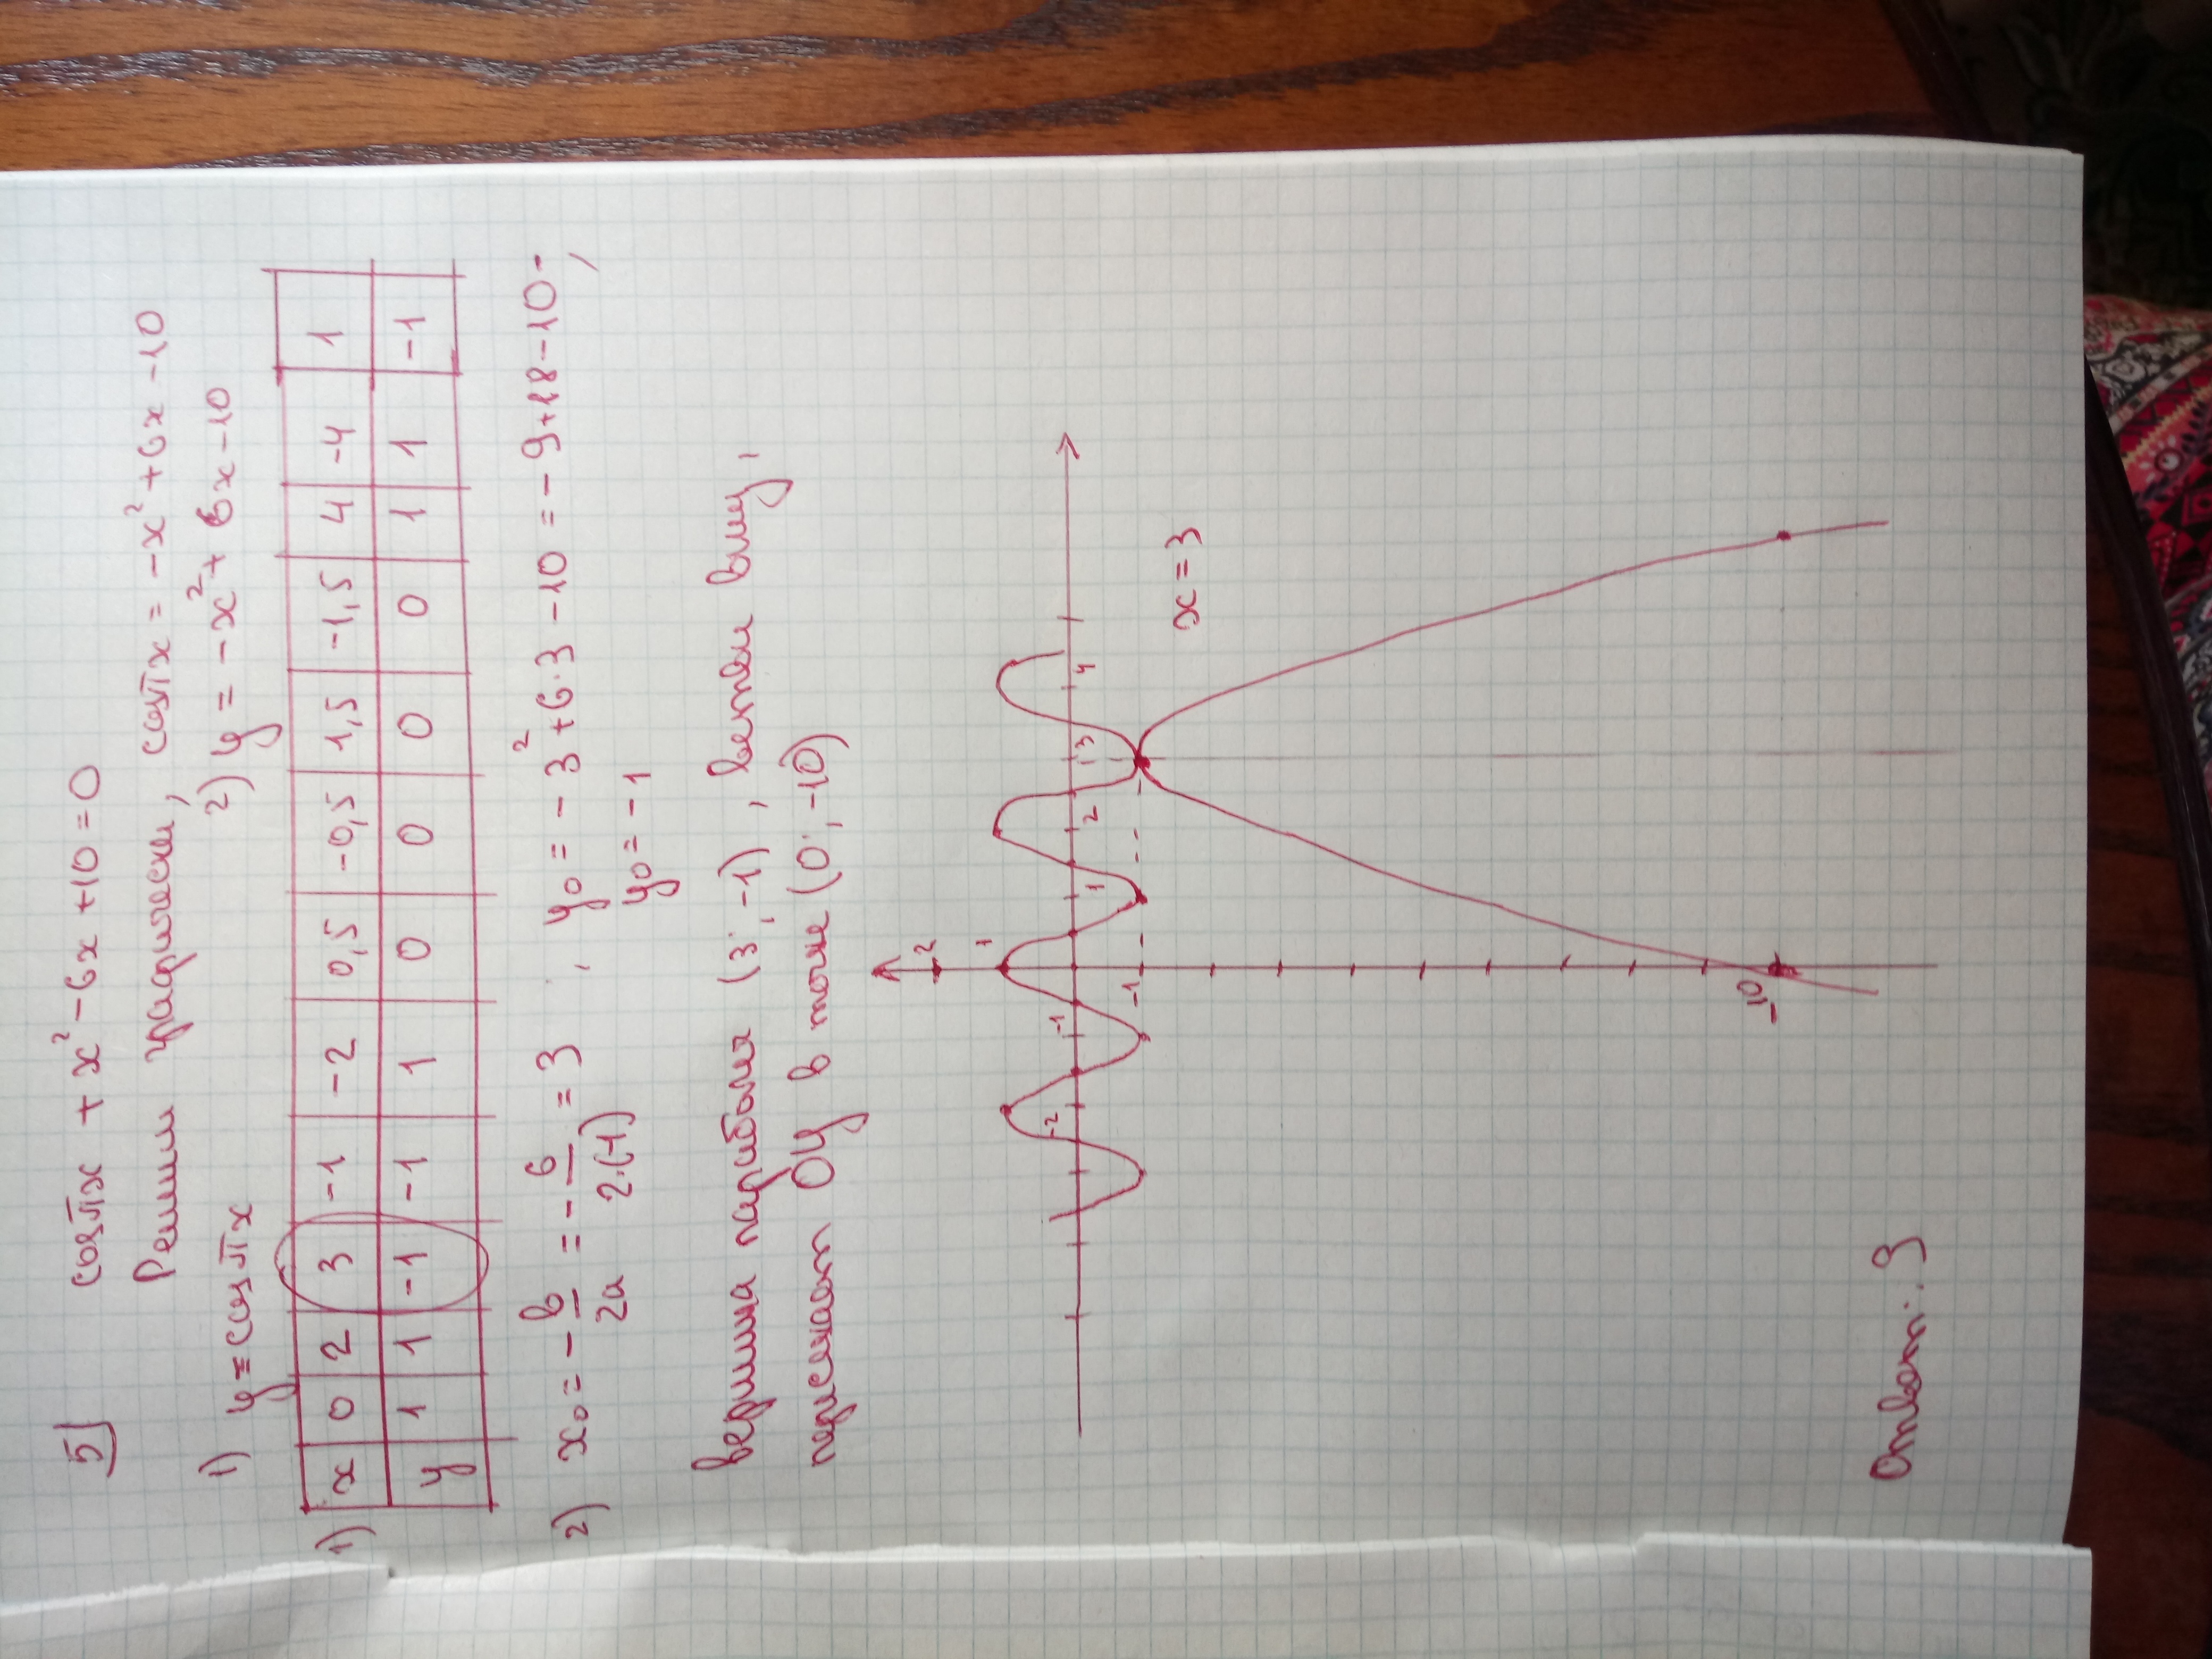 5) cosπx + x² - 6x + 10 = 0
Решим графически, cosπx = -x² + 6x - 10
1) y = cosπx 2) y = -x² + 6x - 10
1)
x 0 2 3 -1 -2 0,5 -0,5 1,5 -1,5 4 -4 1
y 1 1 -1 -1 1 0 0 0 0 1 1 -1
2) x₀ = -b/2a = -6/2·(-1) = 3 ; y₀ = -3² + 6·3 - 10 = -9 + 18 - 10 -,
y₀ = -1
вершина параболы (3; -1), ветви вниз,
пересекает OY в точке (0; -10)
2
1
-2 -1 1 2 3 4
-1
x = 3
-10
Ответ: 3